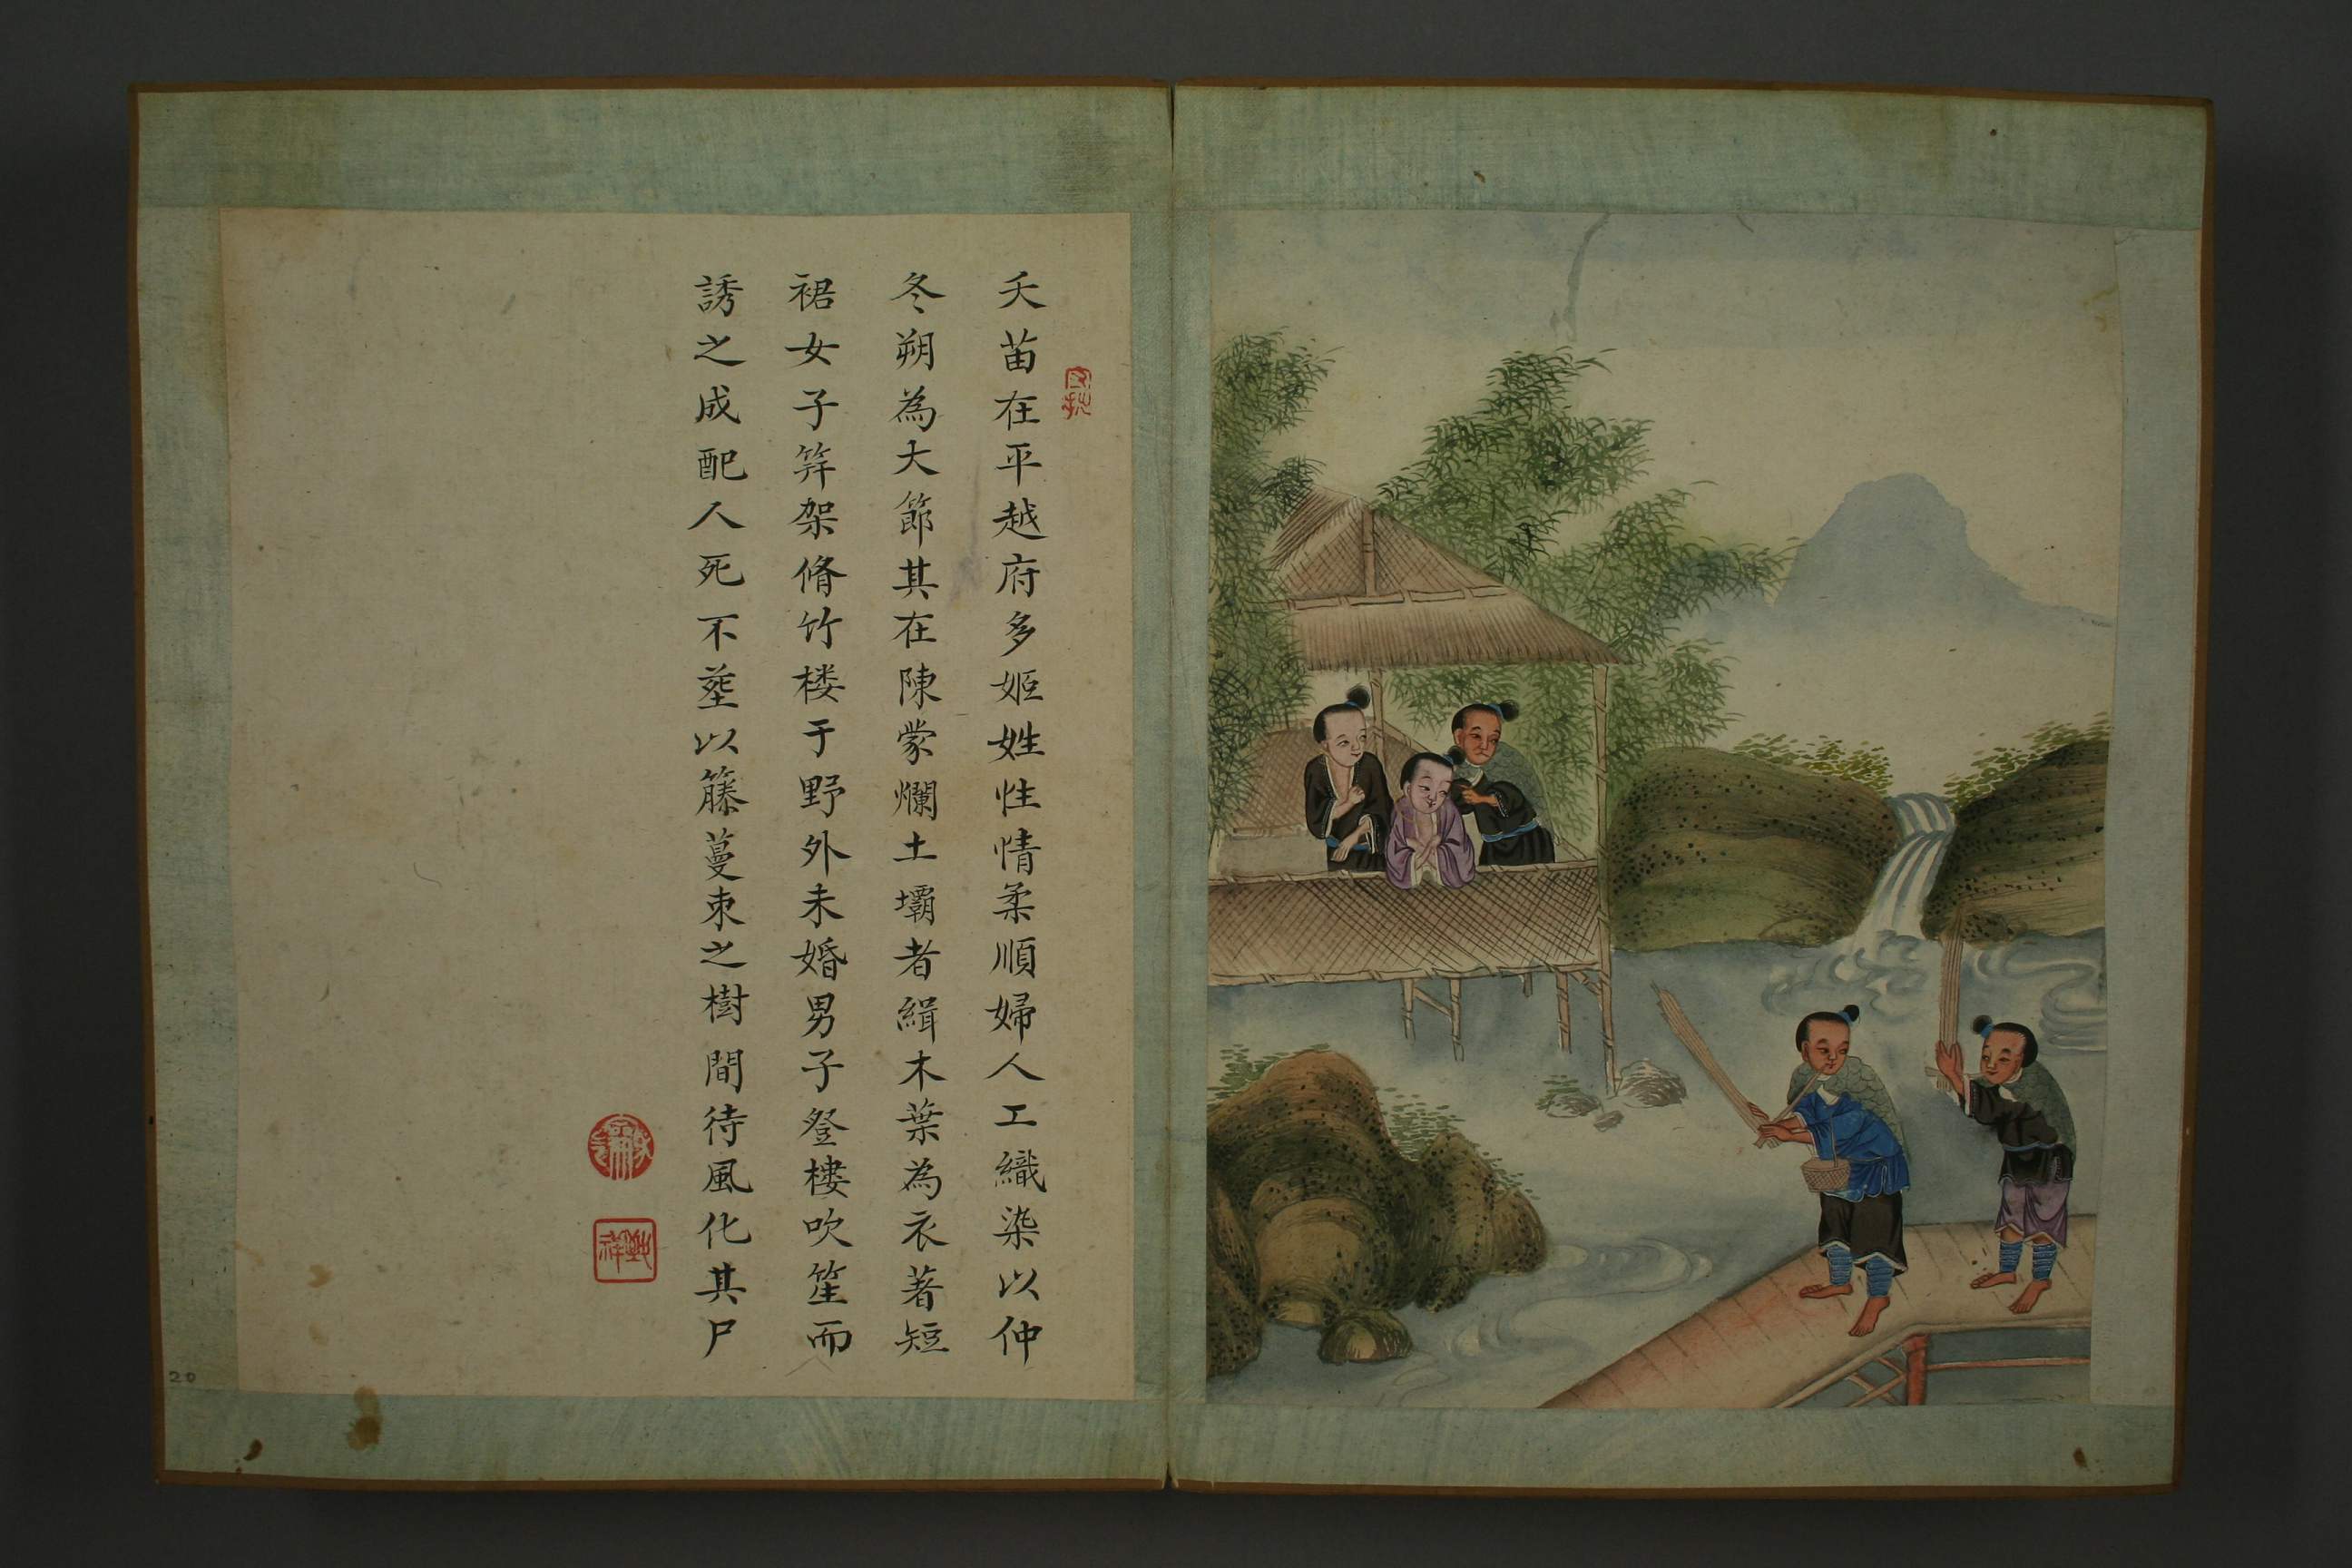 夭苗在平越府多姬姓性情柔順婦人工織染以仲
冬朔為大節其在陳蒙爛土壩者緝木葉為衣著短
裙女子筓架脩竹楼于野外未婚男子登樓吹笙而
誘之成配人死不塟以籐蔓束之樹間待風化其尸
20